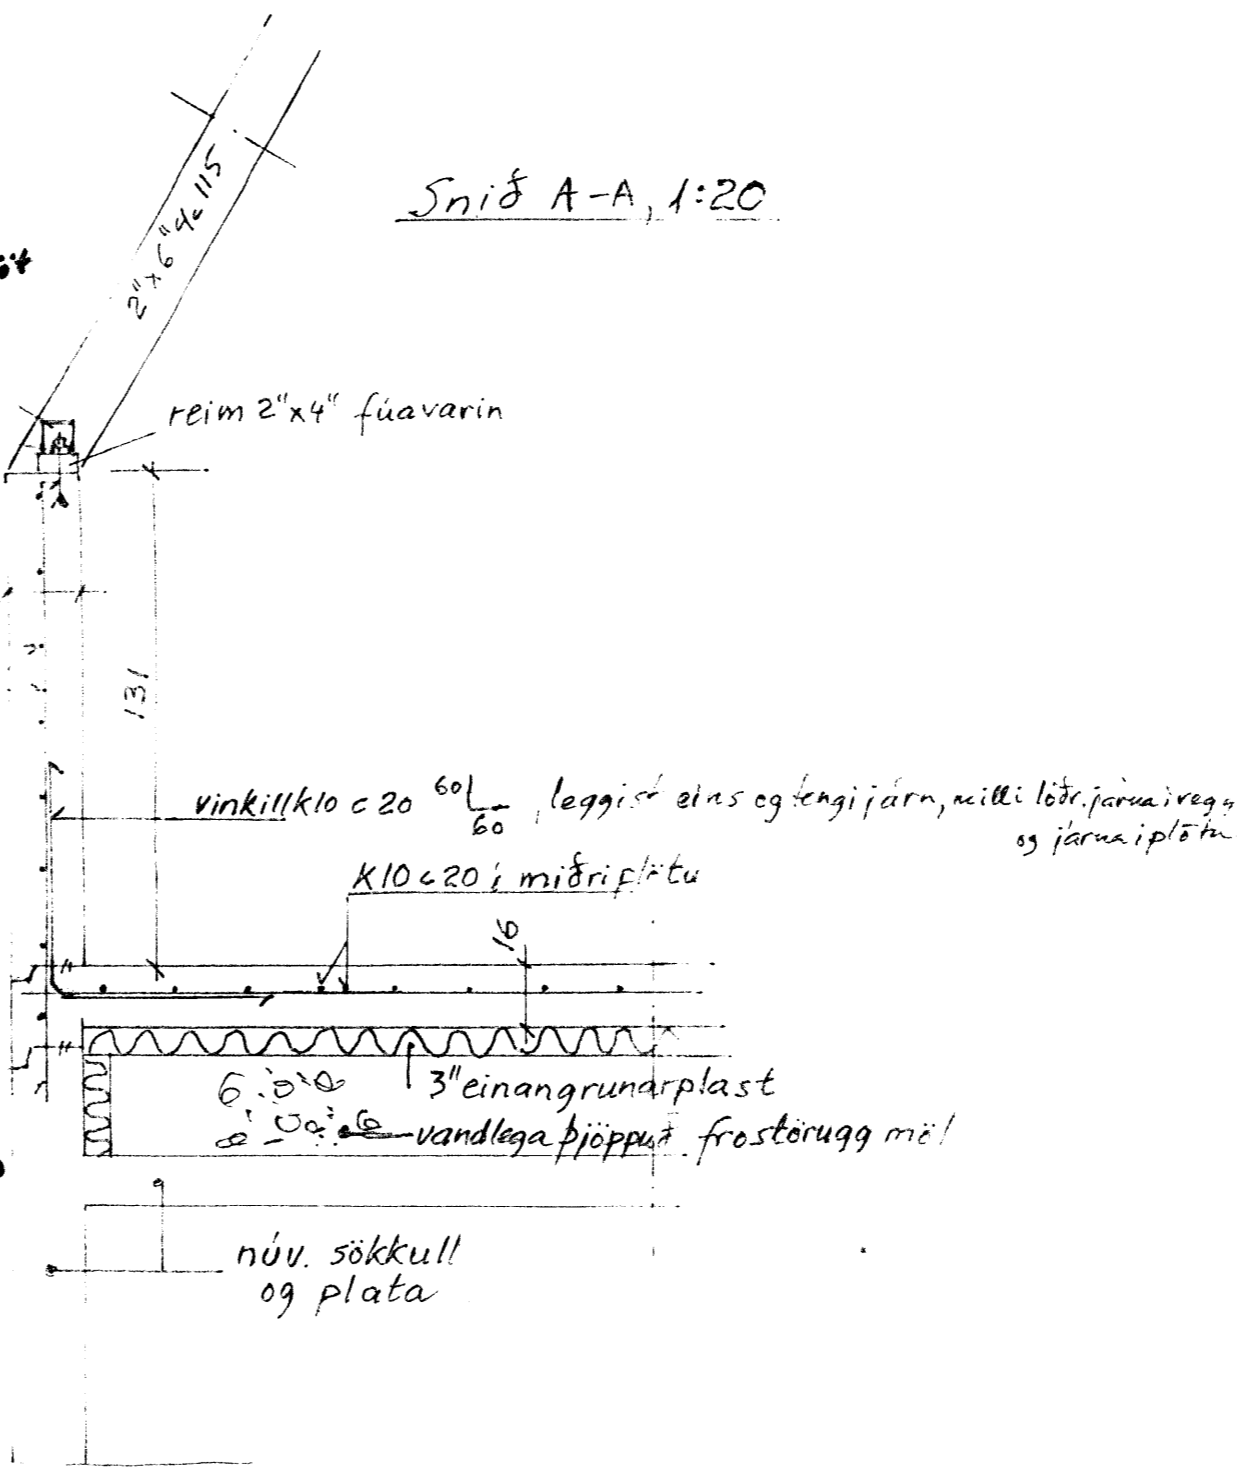 Snið A-A, 1:20
2"x6" c/c 115
reim 2"x4" fúavarin
131
vinkill k10 c 20 60 60, leggist eins og tengijárn, milli lóðr. járna í vegg
og járna í plötu
K10 c 20 í miðri plötu
16
3" einangrunarplast
vandlega þjöppuð frostörugg möl
núv. sökkull
og plata